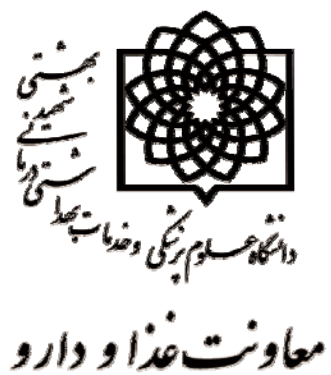 دانشگاه علوم پزشکی و خدمات بهداشتی درمانی شهید بهشتی
معاونت غذا و دارو